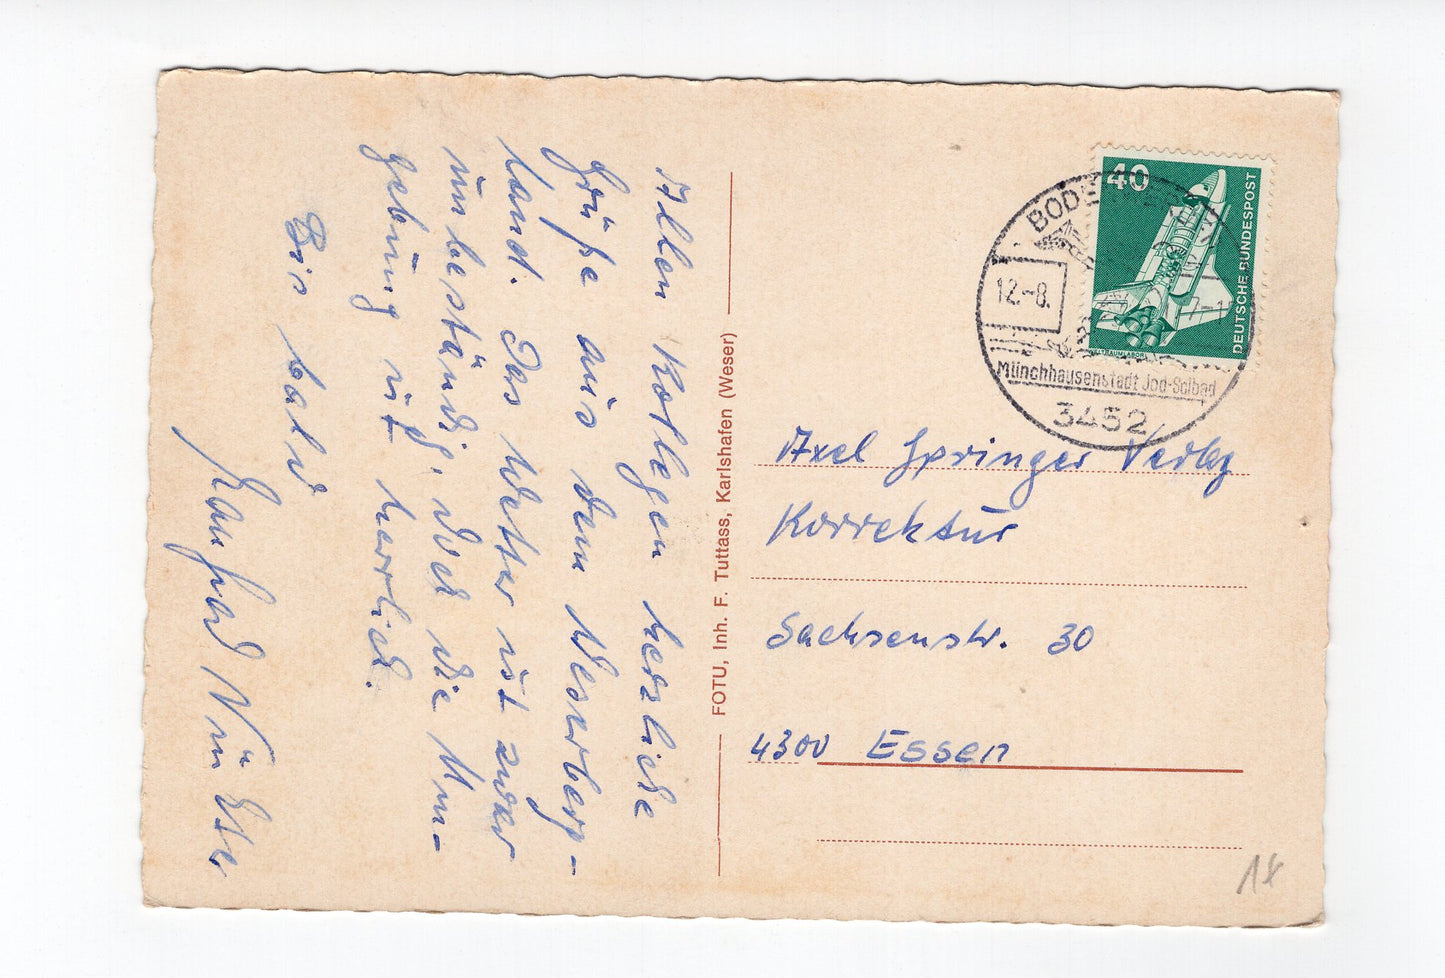 Allen Kollegen herzliche
Grüße aus dem Weserberg-
land. Das Wetter ist zwar
unbeständig, doch die Um-
gebung ist herrlich.
Bis bald
Manfred
FOTU, Inh. F. Tuttass, Karlshafen (Weser)
40
DEUTSCHE BUNDESPOST
WELTRAUMLABOR
12.-8.
Münchhausenstadt Jod-Solbad
3452
Axel Springer Verlag
Korrektur
Sachsenstr. 30
4300 Essen
18